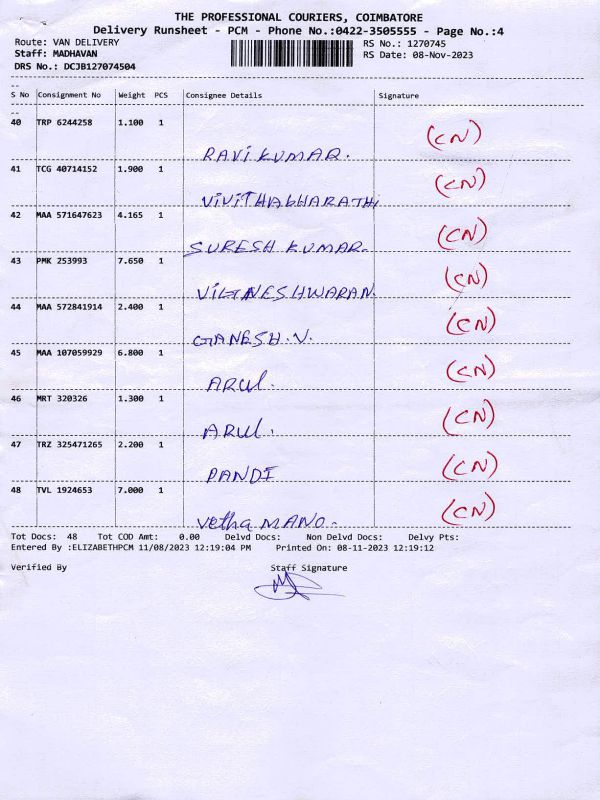 THE PROFESSIONAL COURIERS, COIMBATORE
Delivery Runsheet - PCM - Phone No.:0422-3505555 - Page No.:4
Route: VAN DELIVERY RS No.: 1270745
Staff: MADHAVAN RS Date: 08-Nov-2023
DRS No.: DCJB127074504
S No Consignment No Weight PCS Consignee Details Signature
40 TRP 6244258 1.100 1 (CN)
RAVI KUMAR.
41 TCG 40714152 1.900 1 (CN)
VIVITHABHARATHI
42 MAA 571647623 4.165 1 (CN)
SURESH KUMAR-
43 PMK 253993 7.650 1 (CN)
VIGNESHWARAN
44 MAA 572841914 2.400 1 (CN)
GANESH.V.
45 MAA 107059929 6.800 1 (CN)
ARUL.
46 MRT 320326 1.300 1 (CN)
ARUL.
47 TRZ 325471265 2.200 1 (CN)
PANDI
48 TVL 1924653 7.000 1 (CN)
Vetha MANO-
Tot Docs: 48 Tot COD Amt: 0.00 Delvd Docs: Non Delvd Docs: Delvy Pts:
Entered By :ELIZABETHPCM 11/08/2023 12:19:04 PM Printed On: 08-11-2023 12:19:12
Verified By Staff Signature